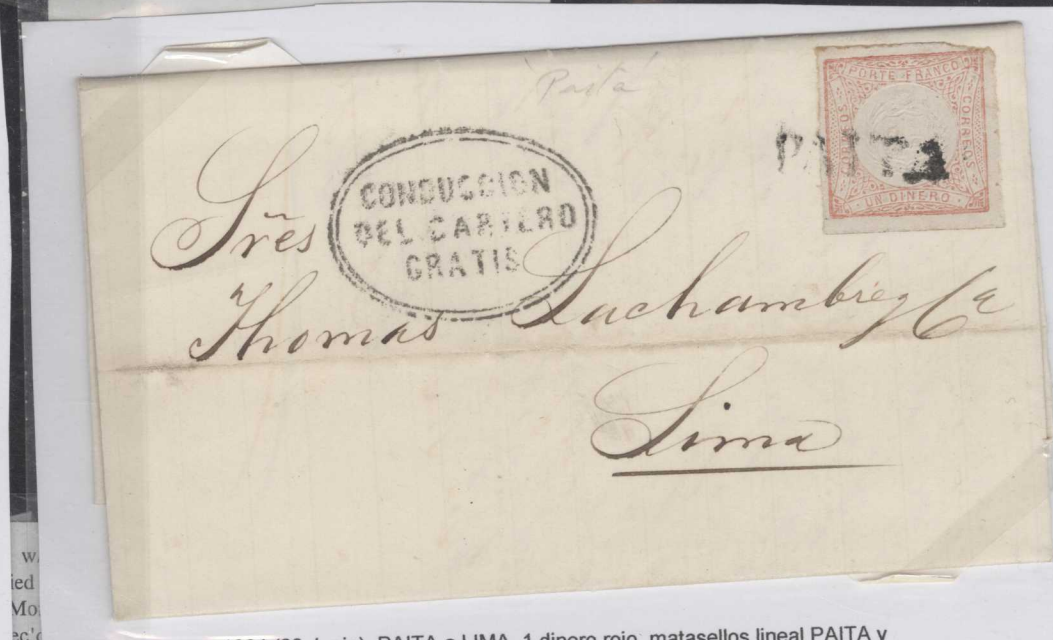 Paita
PORTE FRANCO
CORREOS
CORREOS
UN DINERO
PAITA
CONDUCCION
DEL CARTERO
GRATIS
Sres
Thomas Lachambre y Ca
Lima
w
ied
Mo
ec'd
PAITA a LIMA, 1 dinero rojo, matasellos lineal PAITA y